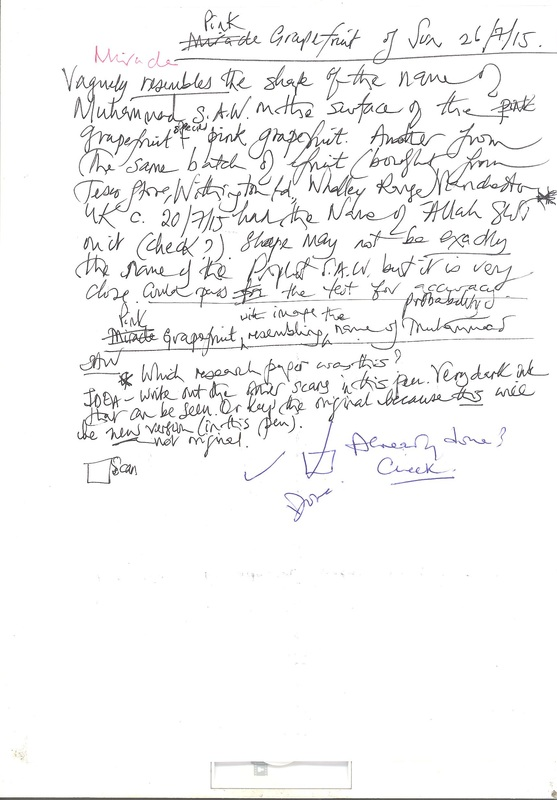 Pink
Miracle Grapefruit of Sun 26/7/15.
Miracle
Vaguely resembles the shape of the name of
Muhammad S.A.W. on the surface of the pink
grapefruit special pink grapefruit. Another from
the same batch of fruit (bought from
Tesco Store, Withington Rd, Whalley Range, Manchester
UK c. 20/7/15 had the Name of Allah SWT
on it (check?) Shape may not be exactly
the name of the Prophet S.A.W. but it is very
close. Could pass for the test for accuracy
probability
Pink with image the
Miracle Grapefruit, resembling name of Muhammad
SAW
* Which research paper was this?
IDEA - write out the other scans in this pen. Very dark ink
that can be seen. Or keep the original because this will
be new version (in this pen).
not original.
Scan
Already done?
Check.
Done